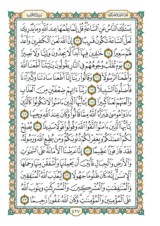 يَسْـَٔلُكَ ٱلنَّاسُ عَنِ ٱلسَّاعَةِ قُلْ إِنَّمَا عِلْمُهَا عِندَ ٱللَّهِ وَمَا يُدْرِيكَ
لَعَلَّ ٱلسَّاعَةَ تَكُونُ قَرِيبًا إِنَّ ٱللَّهَ لَعَنَ ٱلْكَٰفِرِينَ وَأَعَدَّ
لَهُمْ سَعِيرًا خَٰلِدِينَ فِيهَآ أَبَدًا لَّا يَجِدُونَ وَلِيًّا وَلَا نَصِيرًا
يَوْمَ تُقَلَّبُ وُجُوهُهُمْ فِى ٱلنَّارِ يَقُولُونَ يَٰلَيْتَنَآ أَطَعْنَا ٱللَّهَ
وَأَطَعْنَا ٱلرَّسُولَا۠ وَقَالُوا۟ رَبَّنَآ إِنَّآ أَطَعْنَا سَادَتَنَا وَكُبَرَآءَنَا
فَأَضَلُّونَا ٱلسَّبِيلَا۠ رَبَّنَآ ءَاتِهِمْ ضِعْفَيْنِ مِنَ ٱلْعَذَابِ
وَٱلْعَنْهُمْ لَعْنًا كَبِيرًا يَٰٓأَيُّهَا ٱلَّذِينَ ءَامَنُوا۟ لَا تَكُونُوا۟ كَٱلَّذِينَ
ءَاذَوْا۟ مُوسَىٰ فَبَرَّأَهُ ٱللَّهُ مِمَّا قَالُوا۟ وَكَانَ عِندَ ٱللَّهِ وَجِيهًا
يَٰٓأَيُّهَا ٱلَّذِينَ ءَامَنُوا۟ ٱتَّقُوا۟ ٱللَّهَ وَقُولُوا۟ قَوْلًا سَدِيدًا يُصْلِحْ
لَكُمْ أَعْمَٰلَكُمْ وَيَغْفِرْ لَكُمْ ذُنُوبَكُمْ وَمَن يُطِعِ ٱللَّهَ وَرَسُولَهُۥ
فَقَدْ فَازَ فَوْزًا عَظِيمًا إِنَّا عَرَضْنَا ٱلْأَمَانَةَ عَلَى ٱلسَّمَٰوَٰتِ
وَٱلْأَرْضِ وَٱلْجِبَالِ فَأَبَيْنَ أَن يَحْمِلْنَهَا وَأَشْفَقْنَ مِنْهَا وَحَمَلَهَا
ٱلْإِنسَٰنُ إِنَّهُۥ كَانَ ظَلُومًا جَهُولًا لِّيُعَذِّبَ ٱللَّهُ ٱلْمُنَٰفِقِينَ
وَٱلْمُنَٰفِقَٰتِ وَٱلْمُشْرِكِينَ وَٱلْمُشْرِكَٰتِ وَيَتُوبَ ٱللَّهُ
عَلَى ٱلْمُؤْمِنِينَ وَٱلْمُؤْمِنَٰتِ وَكَانَ ٱللَّهُ غَفُورًا رَّحِيمًا
٤٢٧